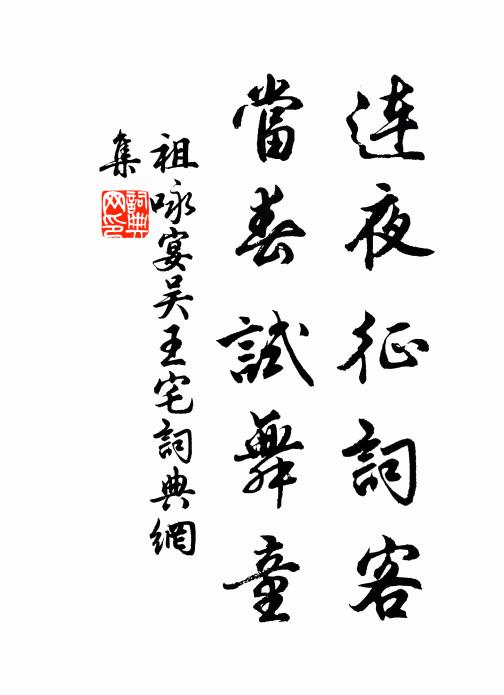 連夜征詞客
當春試舞童
祖咏宴吴王宅詞典網
集
詞典
网印